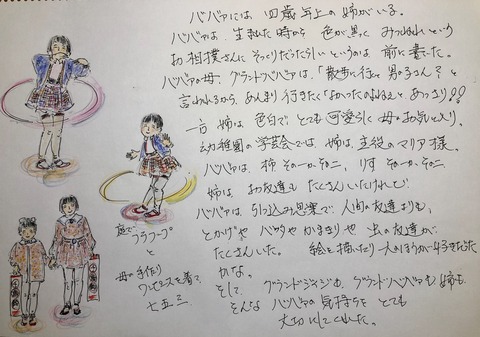 ババアには 四歳年上の姉がいる。
ババアは、生まれた時から 色が黒く みつぬれという
お相撲さんに そっくりだったらしい というのは 前に書いた。
ババアの母、グランドババアは、「散歩に行くと 男の子さん？と
言われるから、あんまり行きたくなかったのよねぇと あっさり!!
一方 姉は、色白で とても可愛らしく 母のお気に入り。
幼稚園の学芸会では 姉は、主役の マリア様。
ババアは、柿 その一か その二、りす その一か その二。
姉は、お友達も たくさんいたけれど
ババアは、引っ込み思案で、人間の友達よりも、
とかげや バッタや かまきりや 虫の友達が、
たくさんいた。 絵を描いたり 一人のほうが好きだった
かな。
そして、 グランドジイジも、グランドババアも 姉も、
そんな ババアの気持ちを とても
大切にしてくれた。
庭で
フラフープ
と
母の手作り
ワンピースを着て、
七五三。